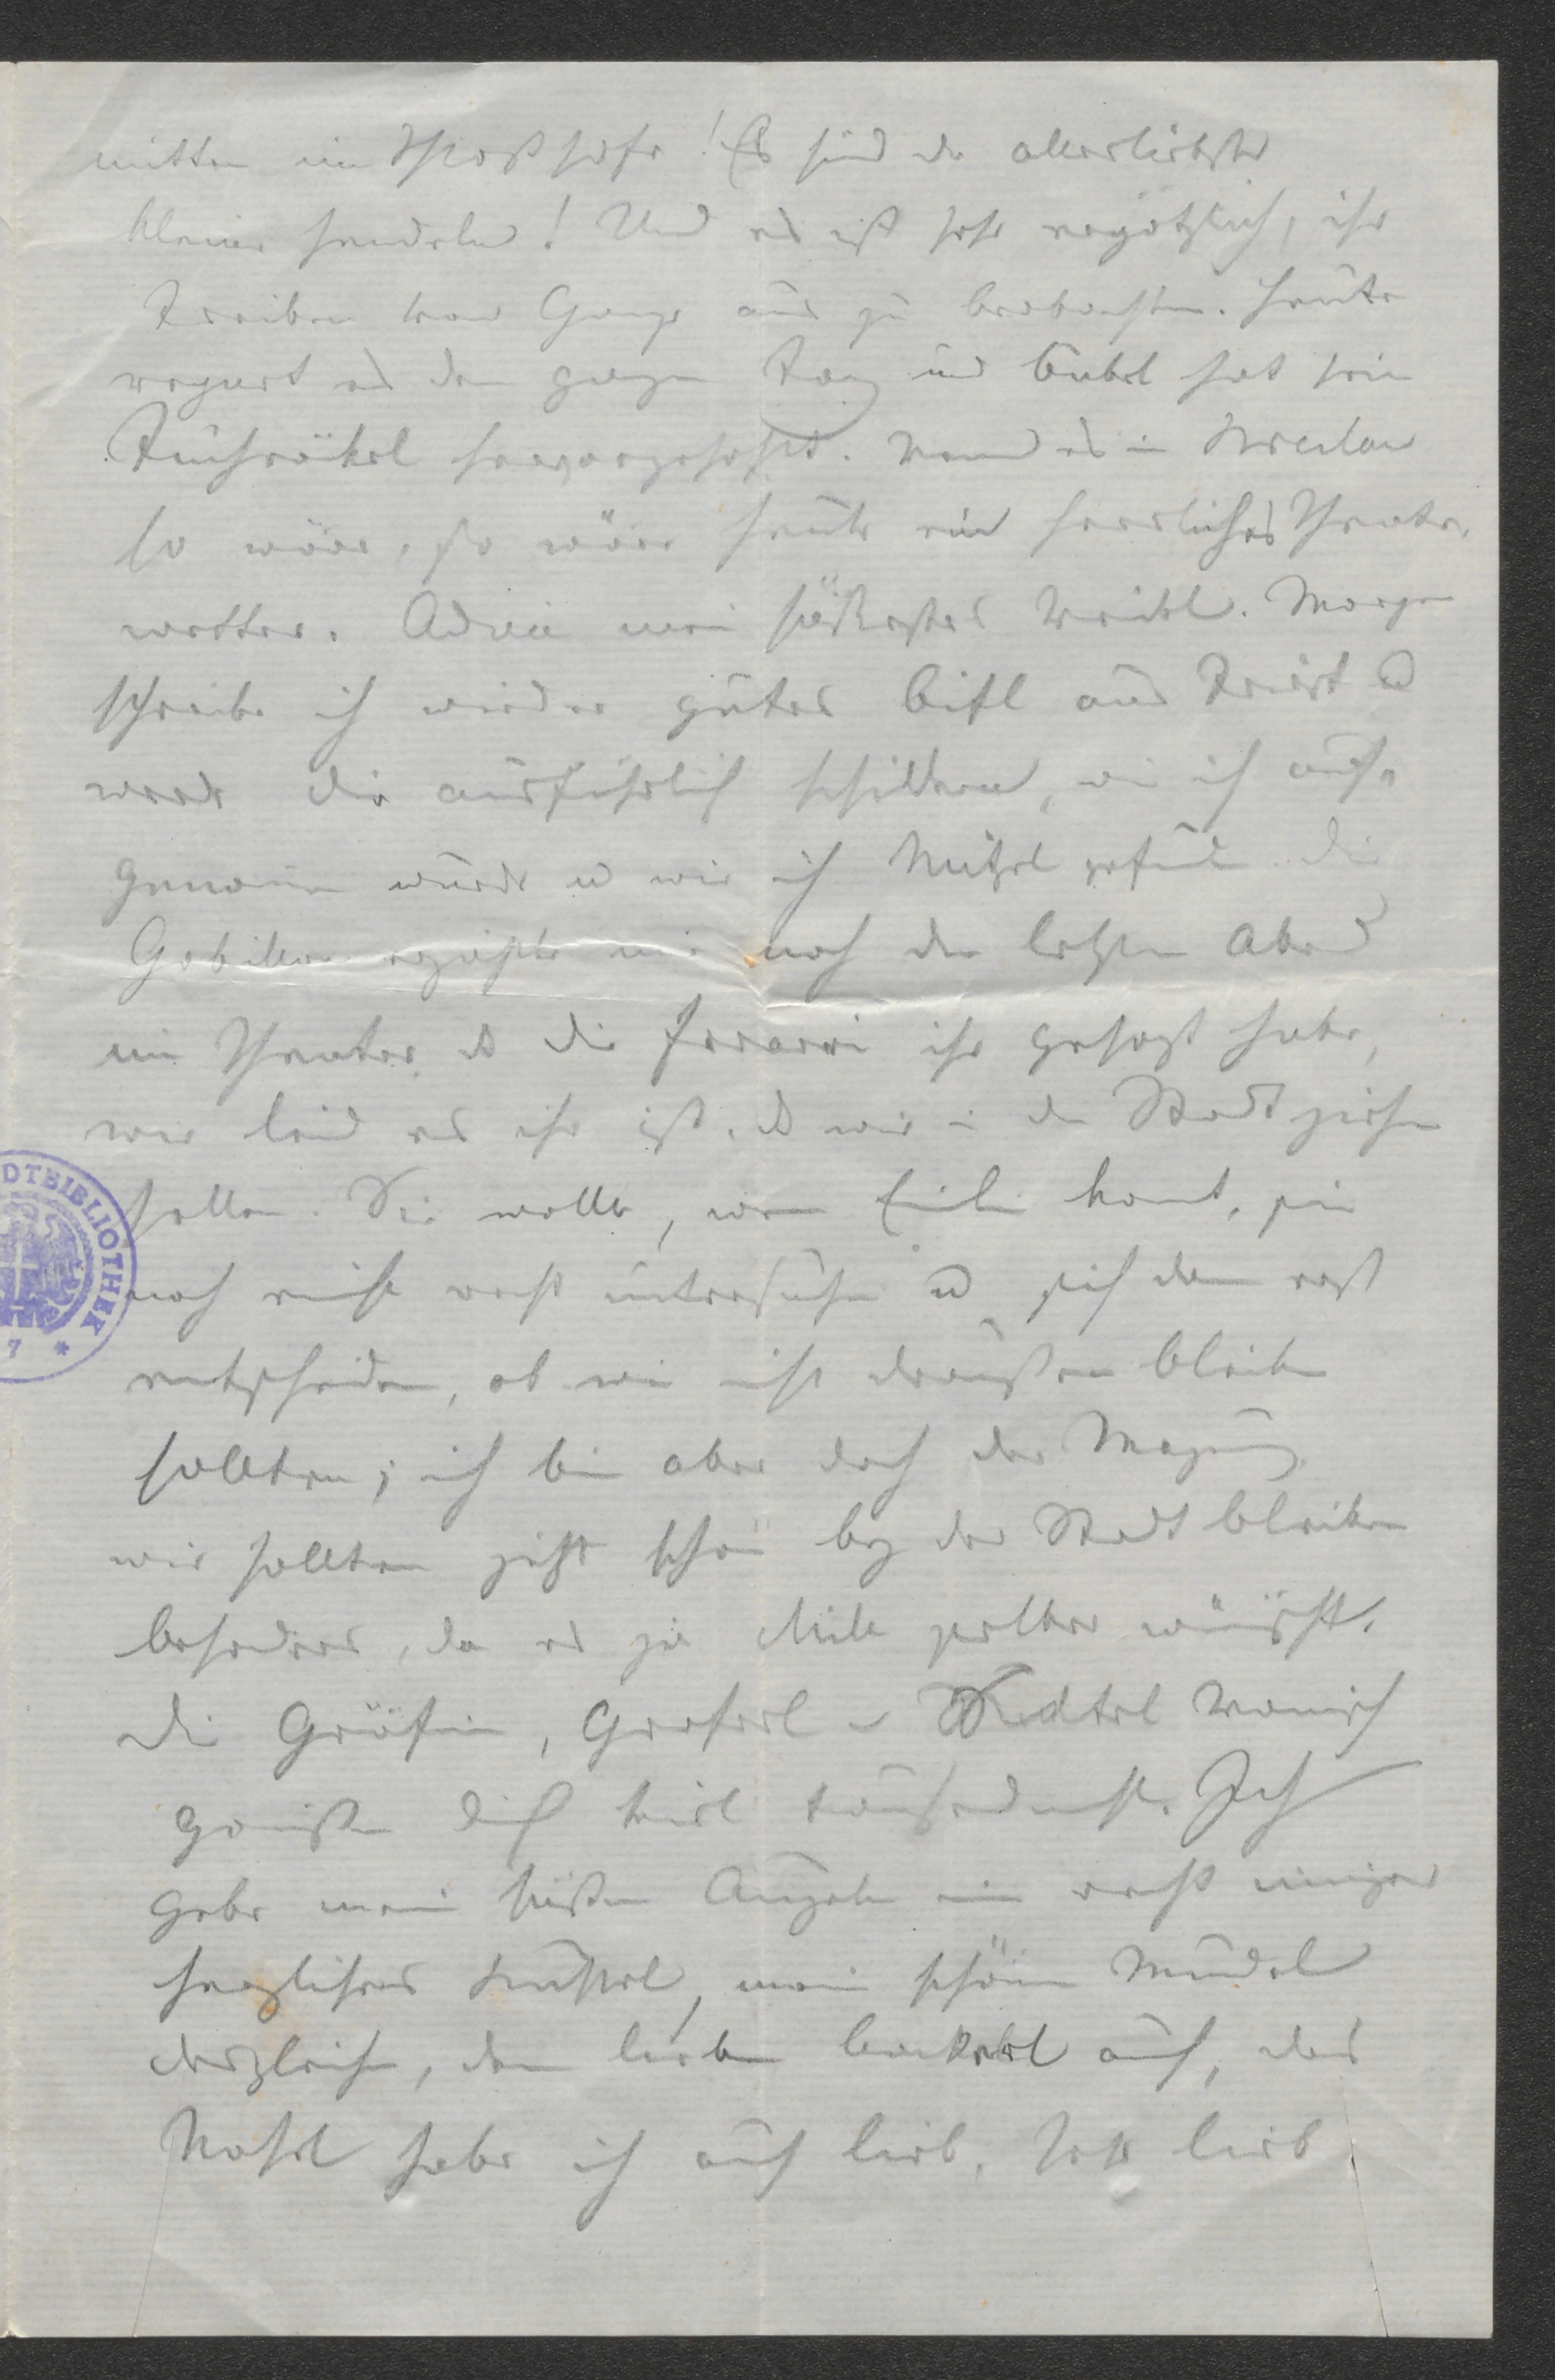 mitten im Schloßhofe! Es sind da allerliebste
kleine Hunderln! Und es ist sehr ergötzlich, ihr
Treiben vom Gange aus zu beobachten. Heute
regnet es den ganzen Tag und Bubel hat sein
Tuchröckel hervorgesucht. Wenn es in Breslau
so wäre, so wäre heute ein herrliches Theater-
wetter. Adieu mein süßestes Weibl. Morgen
schreibe ich wieder gutes aus Triest u
werde dir ausführlich schildern, wie ich auf-
genomen wurde u wie ich gefunden. Die
Gabillon erzählte mir noch den letzten Abend
im Theater, ds die Ferrari ihr gesagt habe,
wie leid es ihr ist, ds wir in die Stadt ziehen
sollen. Sie wolle, wenn komt, sie
noch einmal recht untersuchen u sich dann erst
entscheiden, ob wir nicht draußen bleiben
sollten; ich bin aber doch der Meynung,
wir sollten jetzt schon bey der Stadt bleiben
besonders, da es ja Mile selber wünscht.
Die Gräfin, u
grüßen dich viel tausendmal. Ich
gebe mein süßen Augeln ein recht inniges
herzliches Bussel, mein schönen Mundel
desgleichen, den lieben auch, das
Nasel habe ich auch lieb, sehr lieb
DTBIBLIOTHEK
7 *